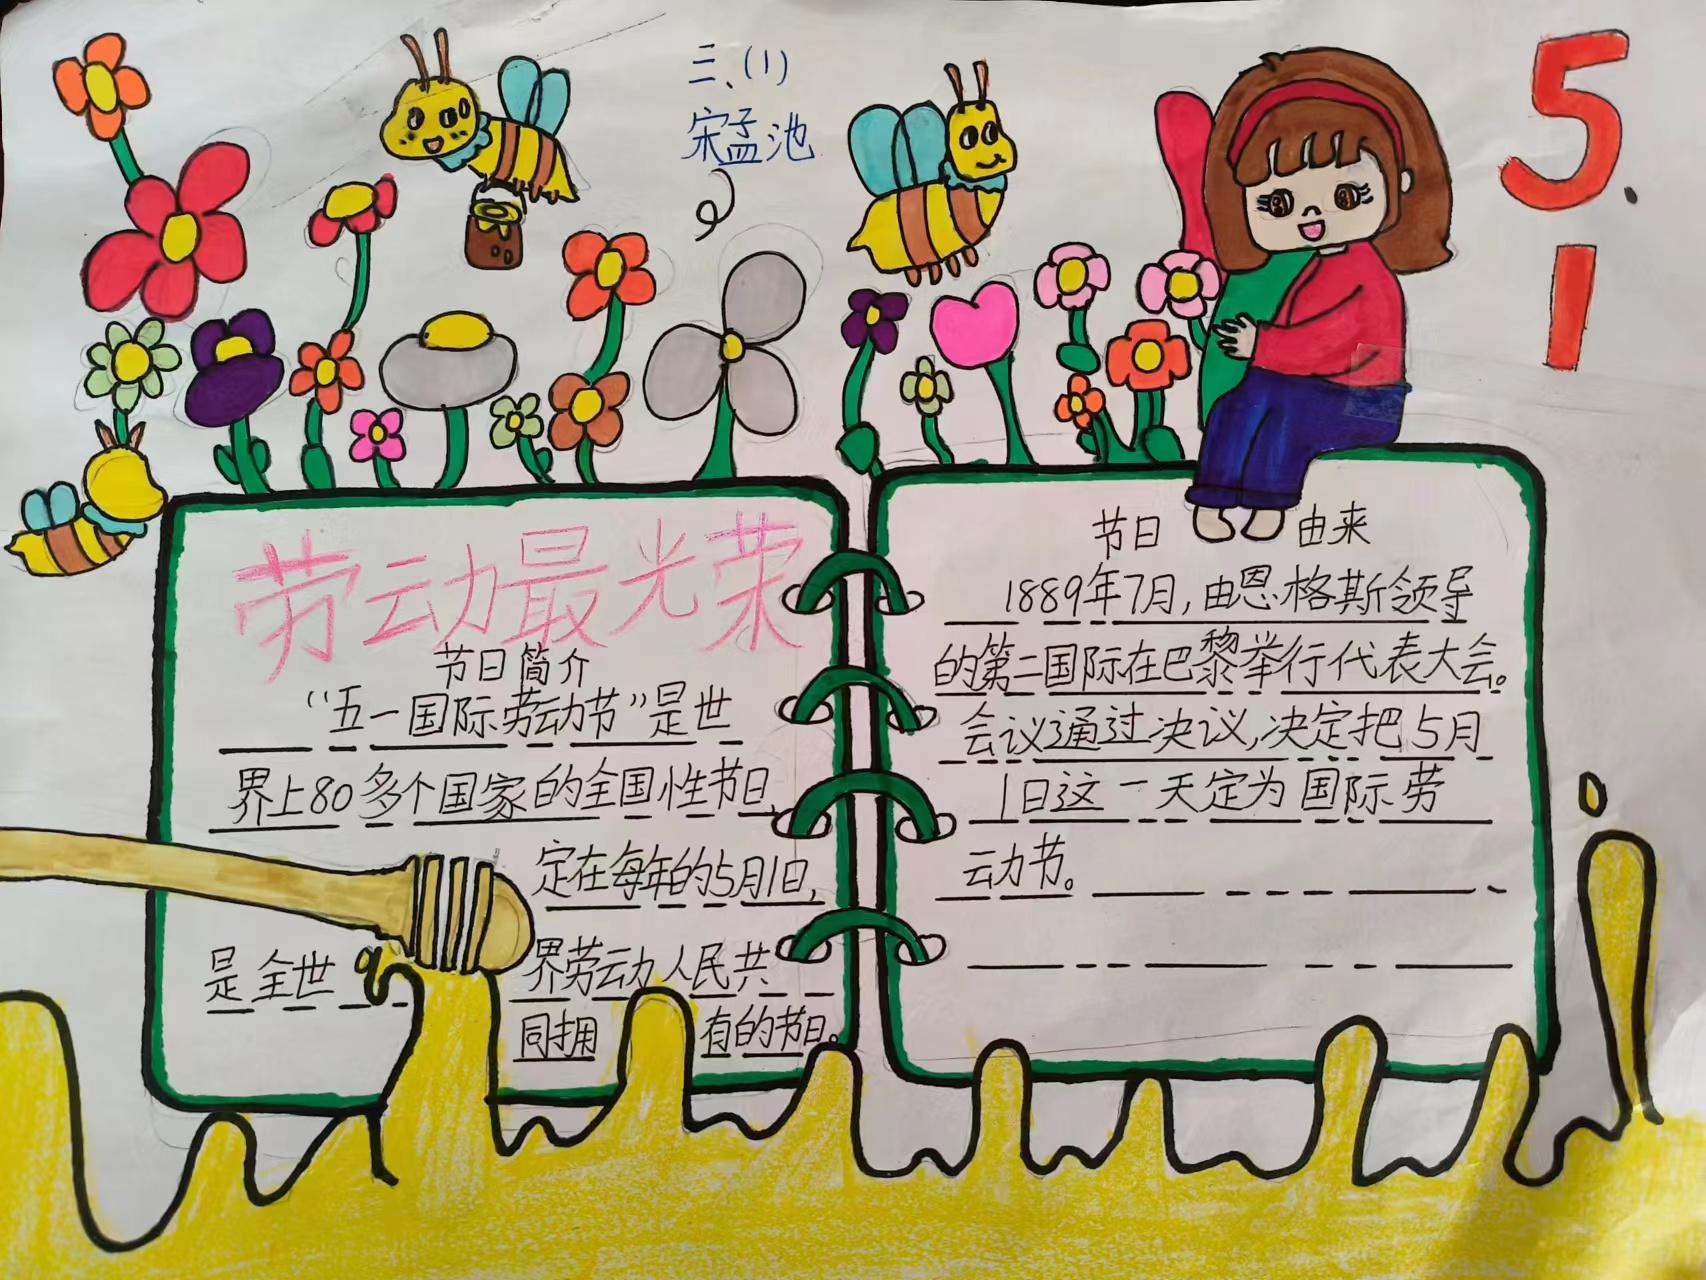 三、(1)
宋孟池
5.
1
劳动最光荣
节日简介
“五一国际劳动节”是世
界上80多个国家的全国性节日,
定在每年的5月1日,
是全世界劳动人民共
同拥有的节日。
节日由来
1889年7月,由恩格斯领导
的第二国际在巴黎举行代表大会。
会议通过决议,决定把5月
1日这一天定为国际劳
动节。